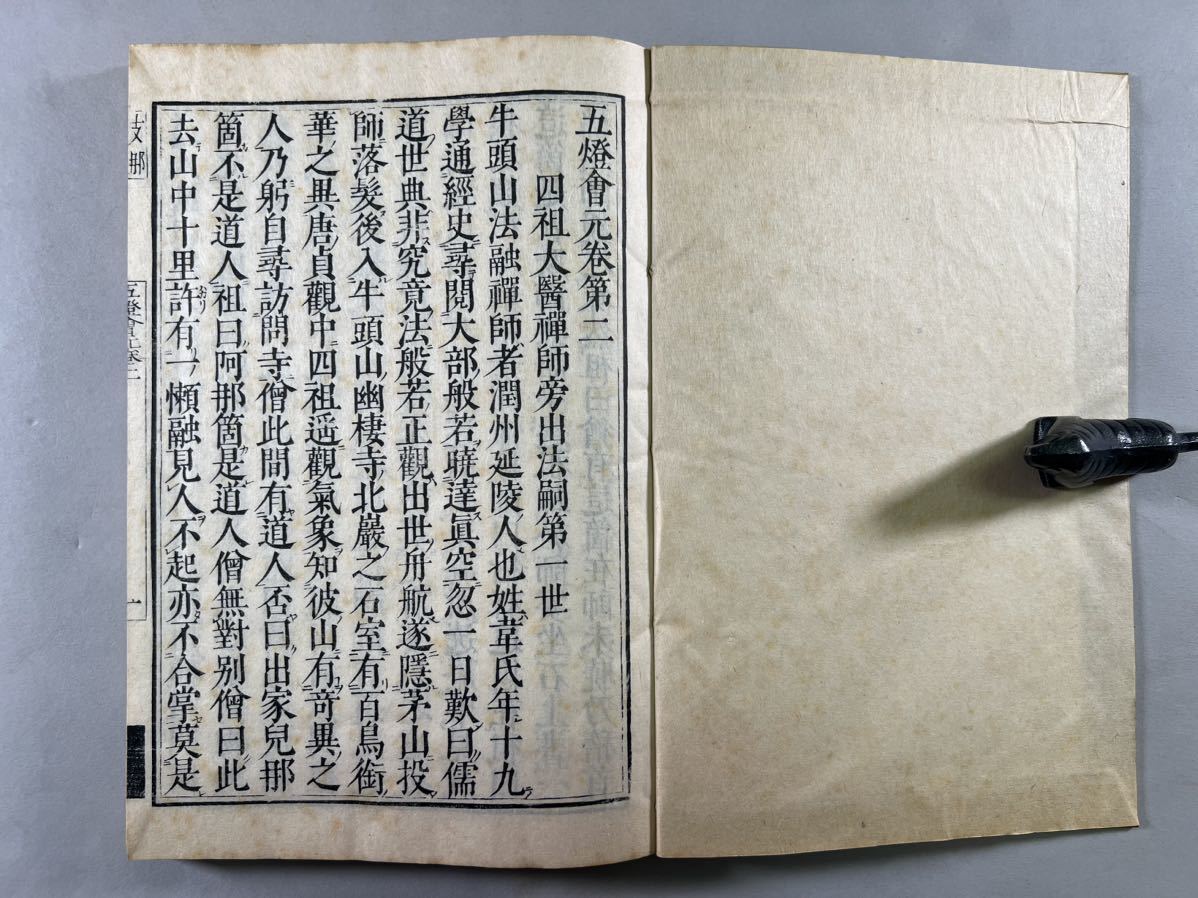 五燈會元卷第二
四祖大醫禪師旁出法嗣第一世
牛頭山法融禪師者潤州延陵人也姓韋氏年十九
學通經史尋閱大部般若曉達眞空忽一日歎曰儒
道世典非究竟法般若正觀出世舟航遂隱茅山投
師落髮後入牛頭山幽棲寺北巖之石室有百鳥銜
華之異唐貞觀中四祖遥觀氣象知彼山有奇異之
人乃躬自尋訪問寺僧此間有道人否曰出家兒那
箇不是道人祖曰阿那箇是道人僧無對別僧曰此
去山中十里許有一懶融見人不起亦不合掌莫是
五燈會元卷二
一